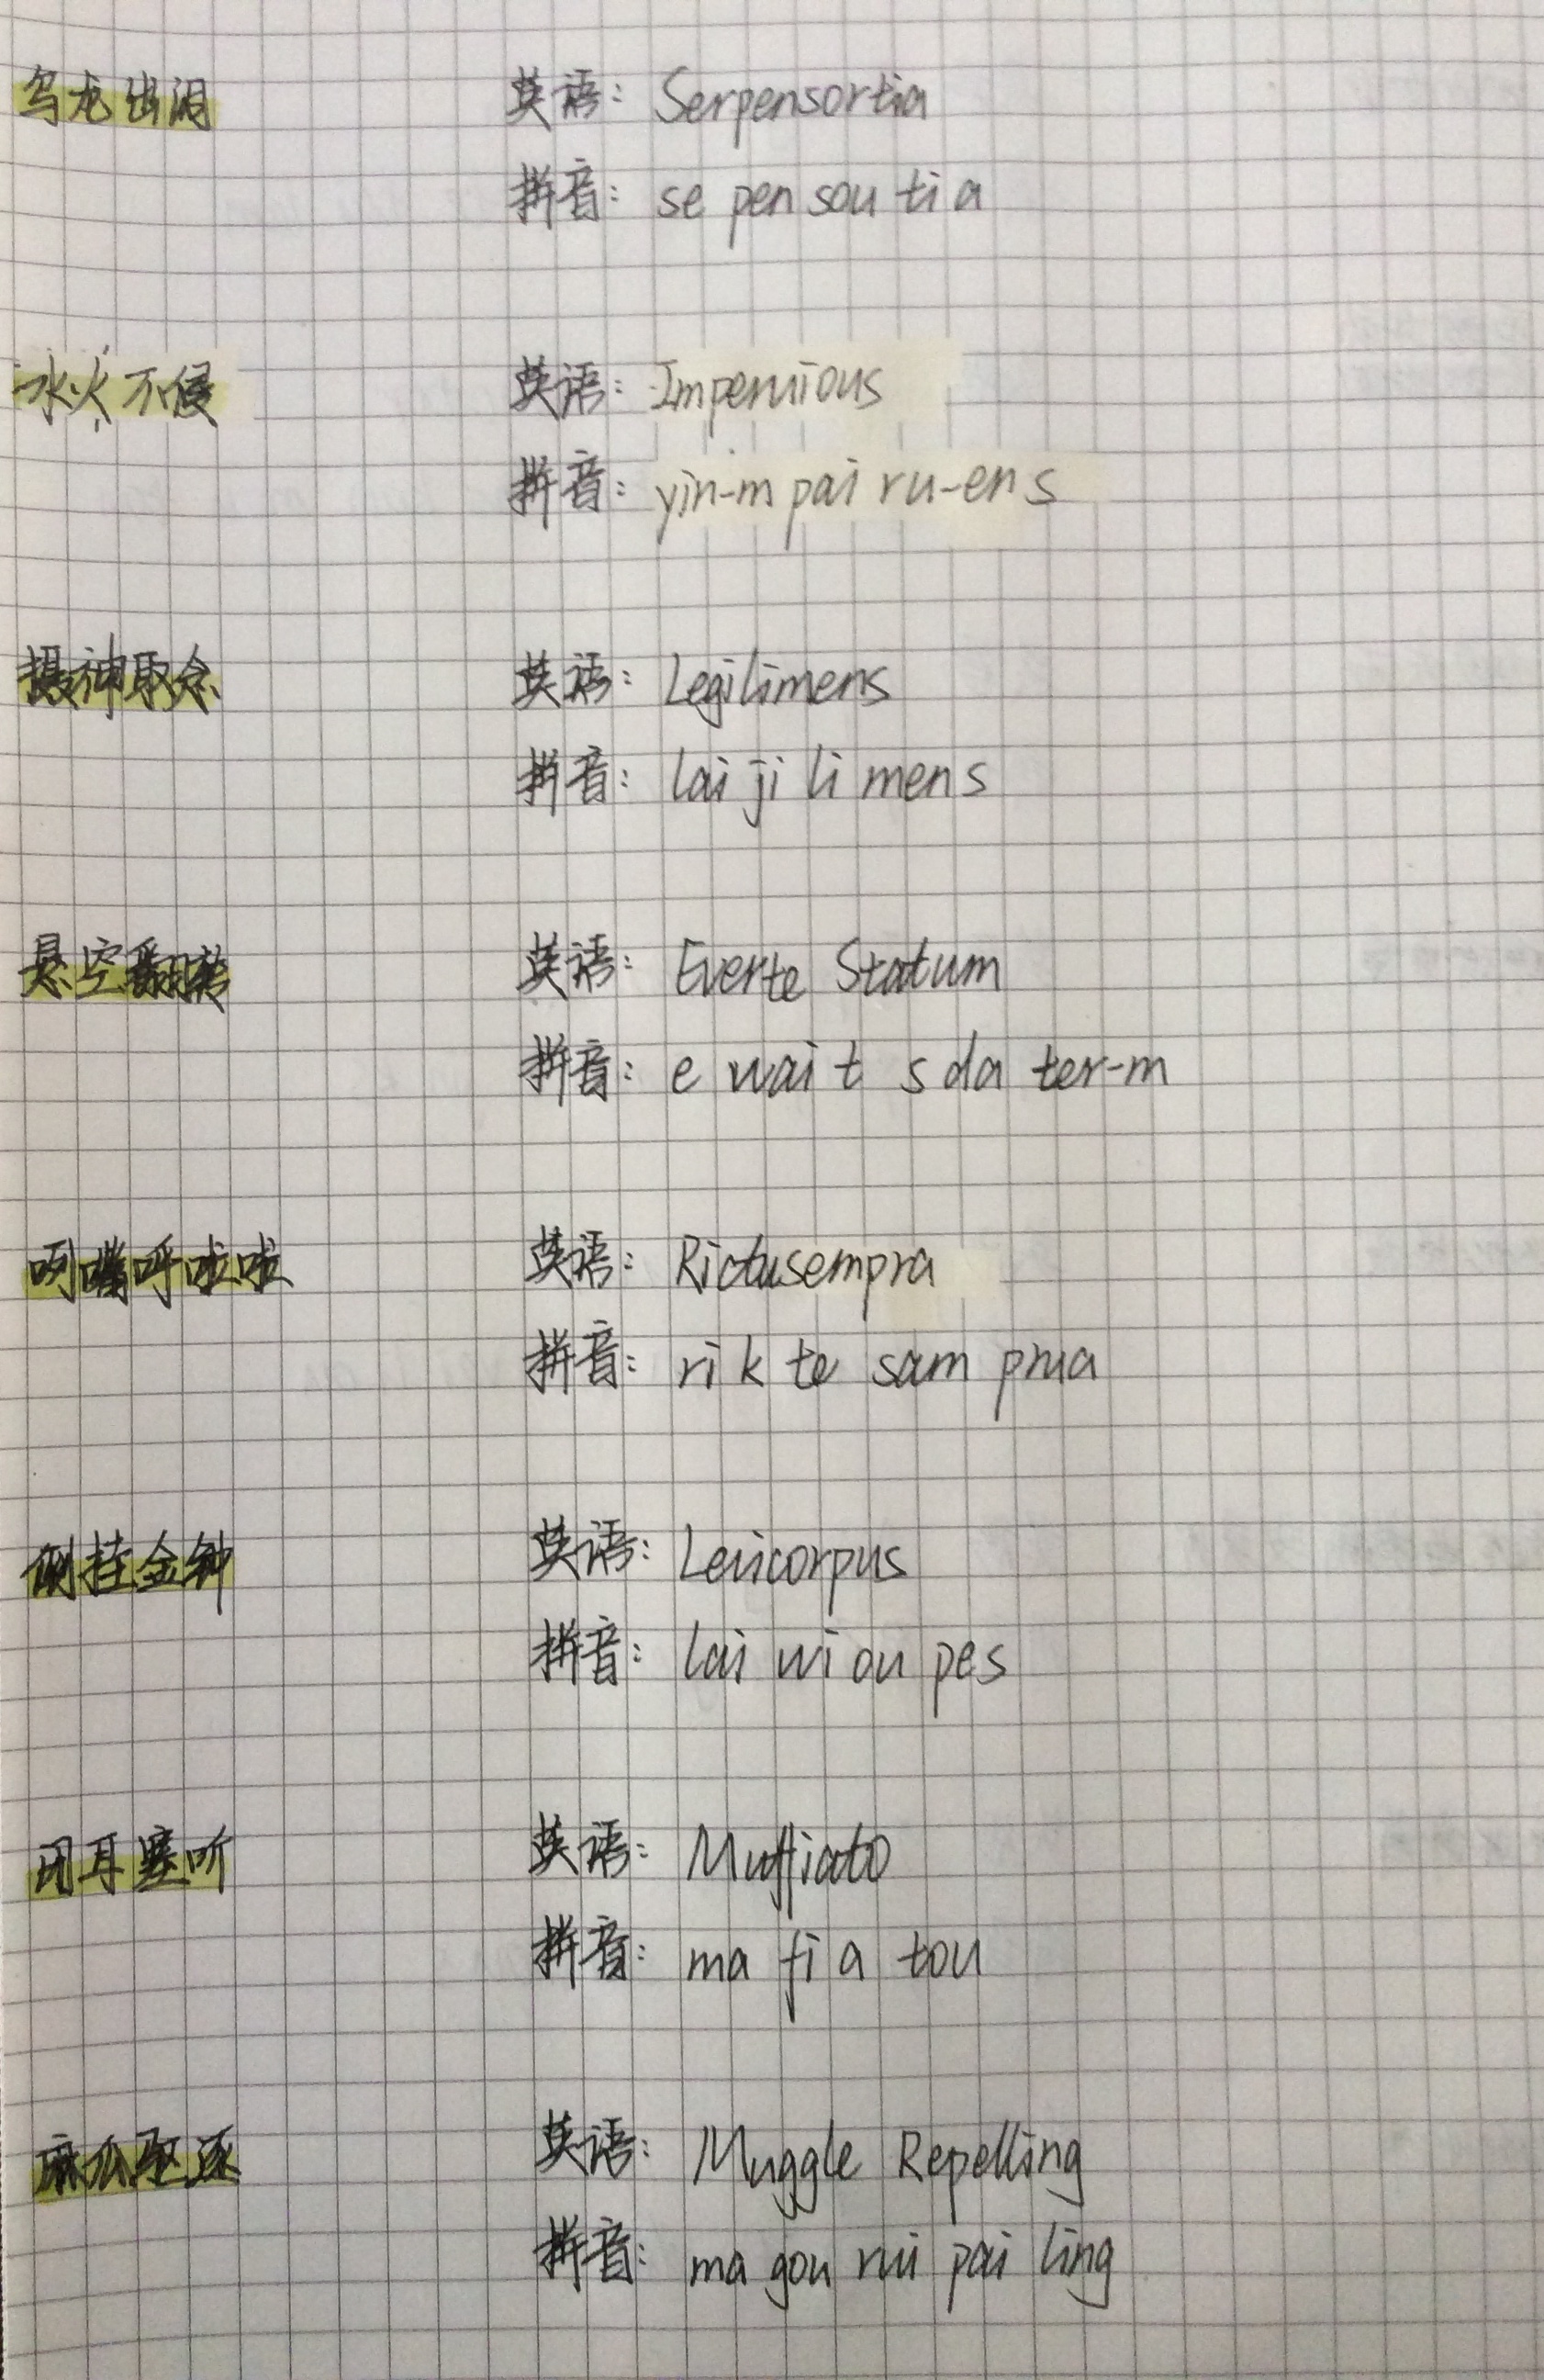 乌龙出洞 英语：Serpensortia
拼音：se pen sou ti a
水火不侵 英语：Impervious
拼音：yin-m pai ru-en s
摄神取念 英语：Legilimens
拼音：lai ji li men s
悬空翻转 英语：Everte Statum
拼音：e wai t s da ter-m
咧嘴呼啦啦 英语：Rictusempra
拼音：ri k te sam prua
倒挂金钟 英语：Levicorpus
拼音：lai wi ou pes
闭耳塞听 英语：Muffiato
拼音：ma fi a tou
麻瓜驱逐 英语：Muggle Repelling
拼音：ma gou rui pai ling